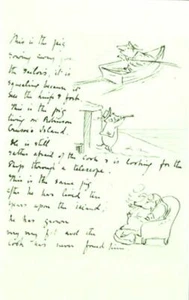 This is the pig
rowing away from
the sailors, it is
squealing because it
sees the knife & fork
This is the pig
living on Robinson
Crusoe's Island.
He is still
rather afraid of the cook & is looking for the
ship through a telescope.
This is the same pig
after he has lived ten
years upon the island,
he has grown
very very fat and the
cook has never found him